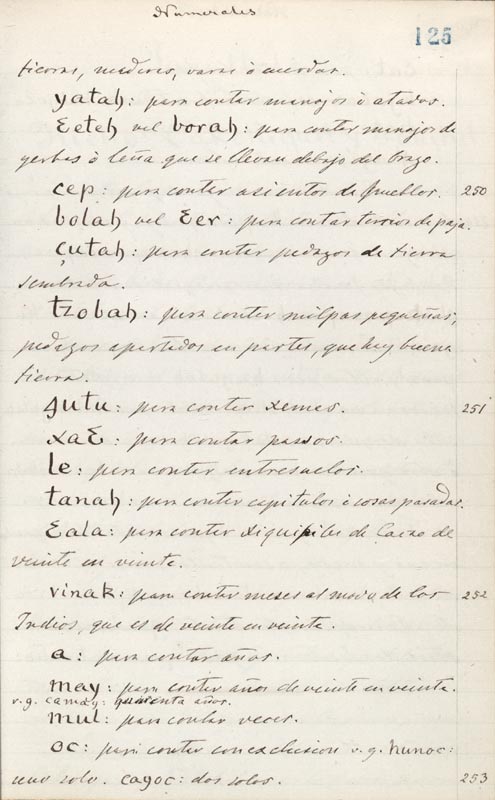 Numerales
125
tierras, maderas, varas ò cuerdas.
yatah: para contar manojos ò atados.
Ɛeteh vel borah: para contar manojos de
yerbas ò leña que se llevan debajo del brazo.
cep: para contar asientos de pueblos. 250
bolah vel Ɛer: para contar tercios de paja.
çutah: para contar pedazos de tierra
sembrada.
tzobah: para contar milpas pequeñas,
pedazos apartados en partes, que hay buena
tierra.
gutu: para contar xemes. 251
xaƐ: para contar passos.
le: para contar entresuelos.
tanah: para contar capitulos ò cosas pasadas.
Ɛala: para contar xiquipiles de Cacao de
veinte en veinte.
vinak: para contar meses al modo de los 252
Indios, que es de veinte en veinte.
a: para contar años.
may: para contar años de veinte en veinte.
v.g. camay: quarenta años.
mul: para contar veces.
oc: para contar con exclusion v.g. hunoc:
uno solo. cagoc: dos solos. 253